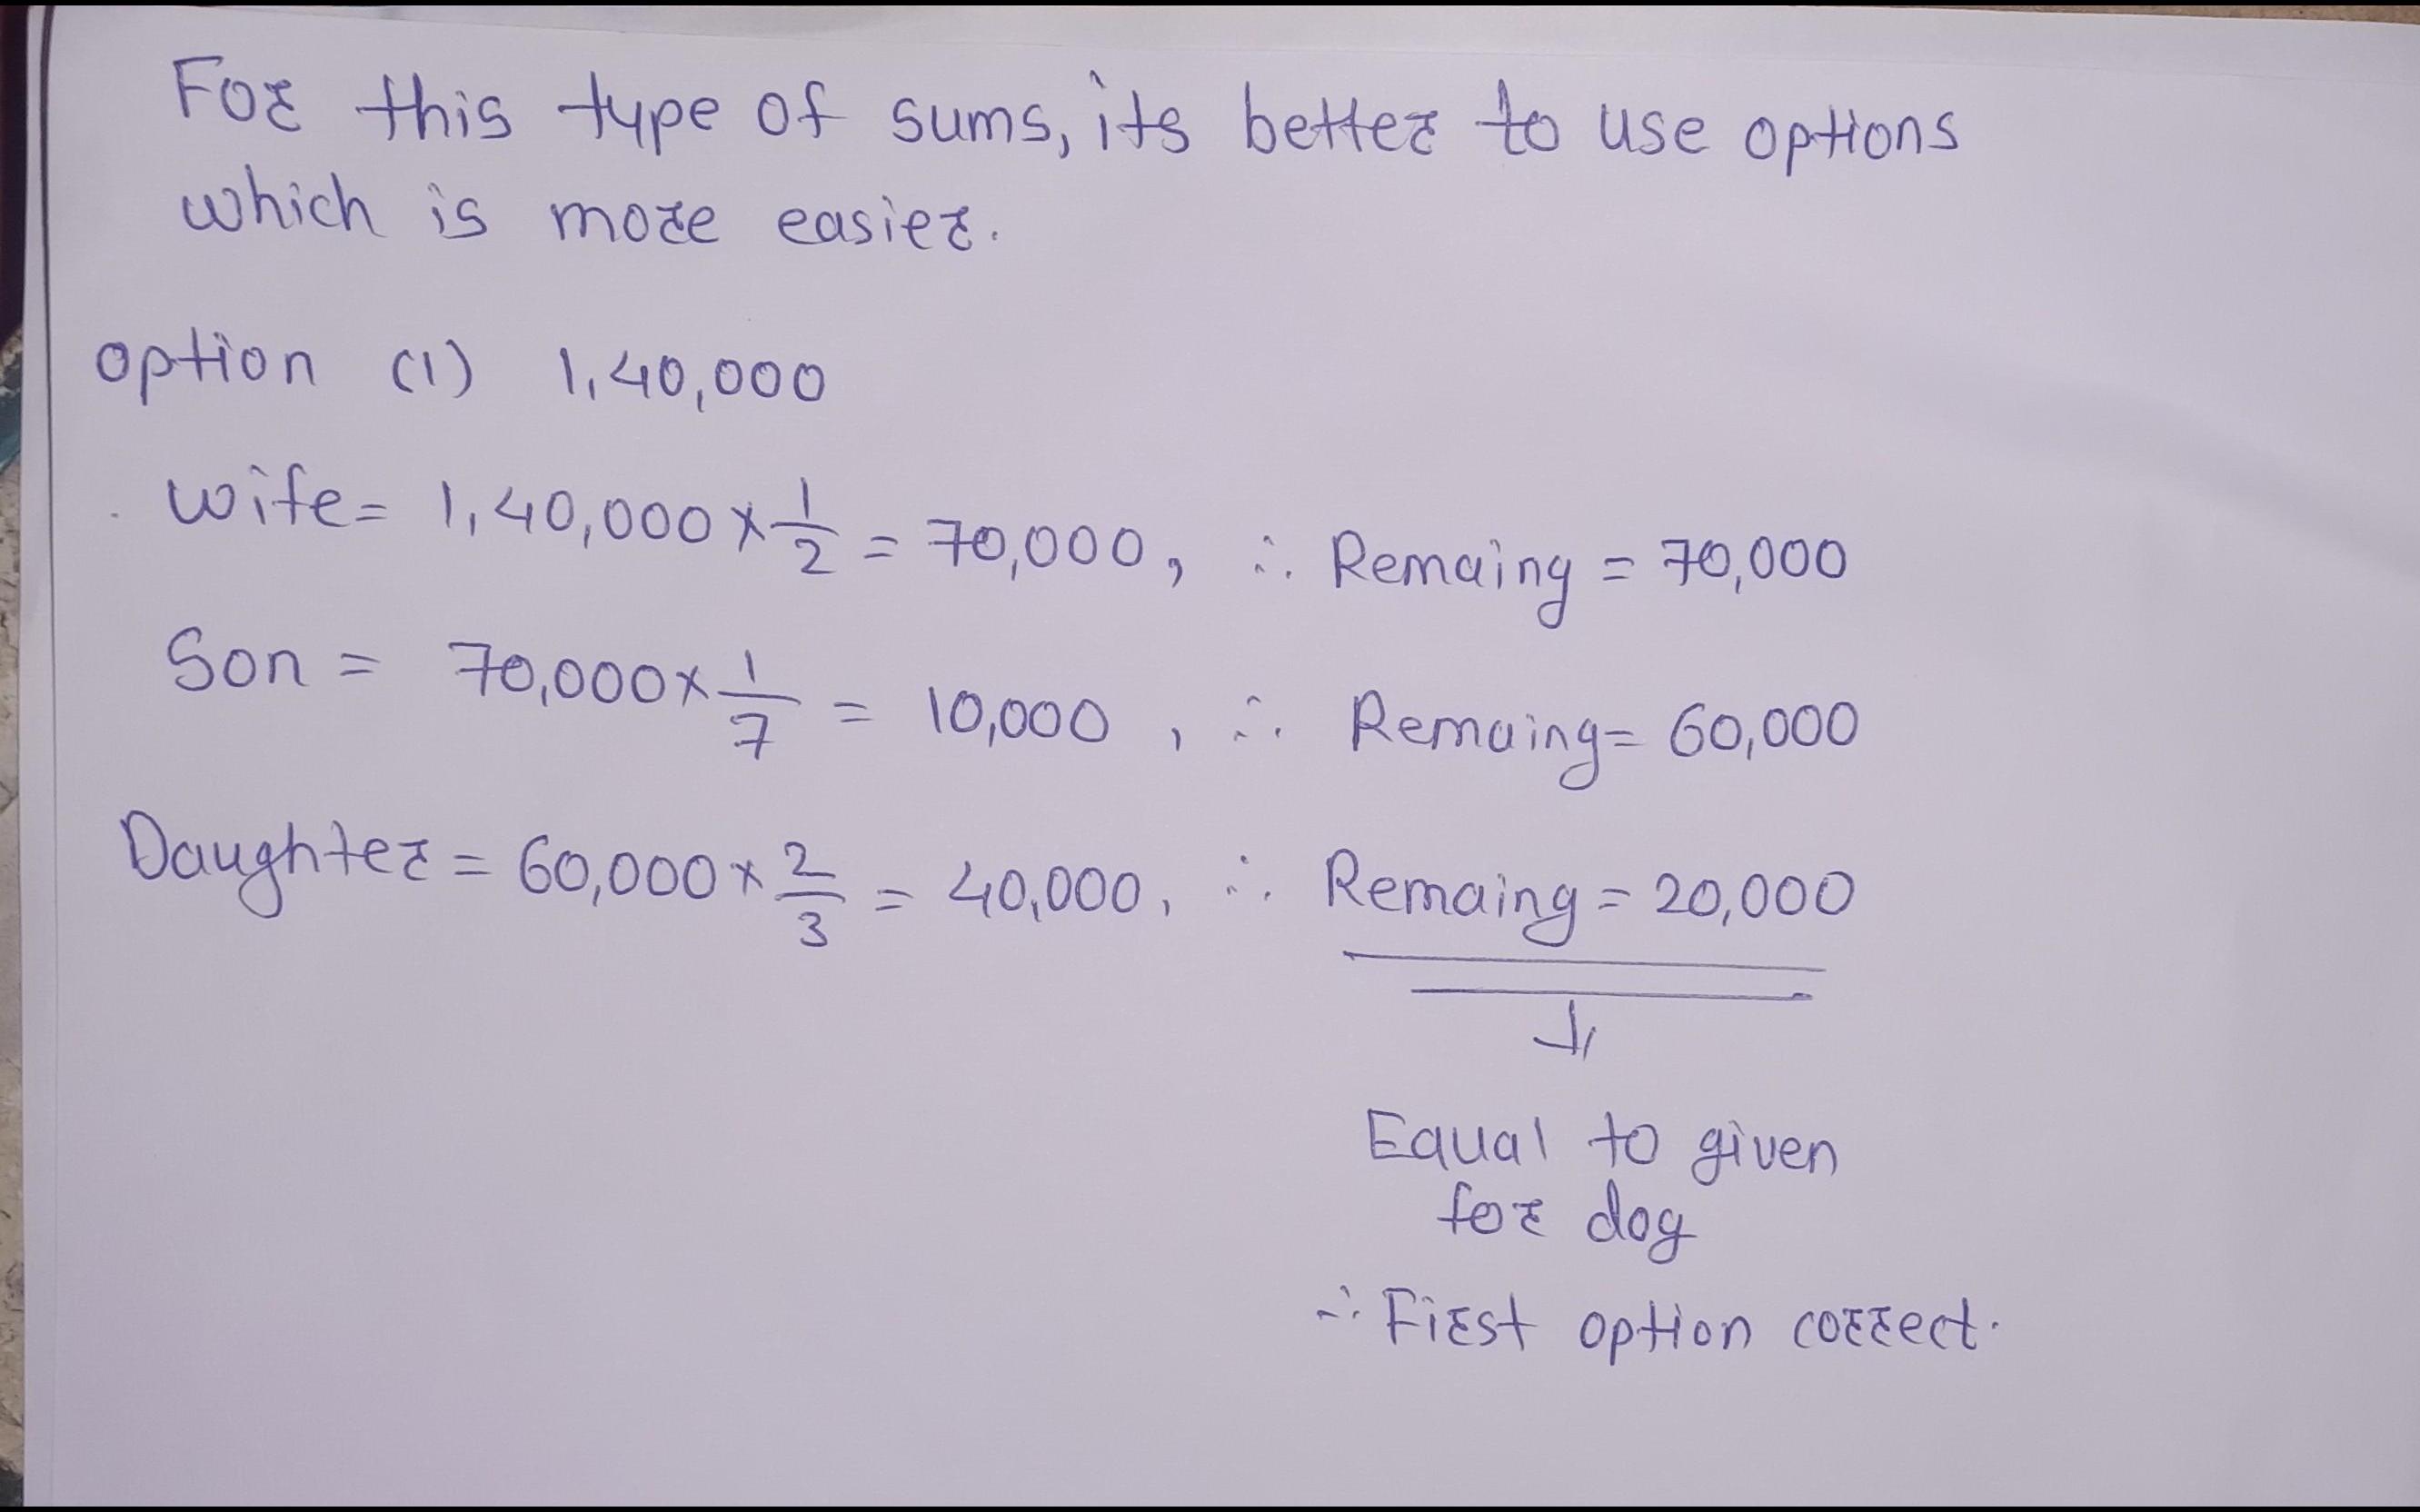 For this type of sums, its better to use options
which is more easier.
option (1) 1,40,000
wife = 1,40,000 × 1/2 = 70,000, ∴ Remaing = 70,000
Son = 70,000 × 1/7 = 10,000, ∴ Remaing = 60,000
Daughter = 60,000 × 2/3 = 40,000, ∴ Remaing = 20,000
Equal to given
for dog
∴ First option correct.